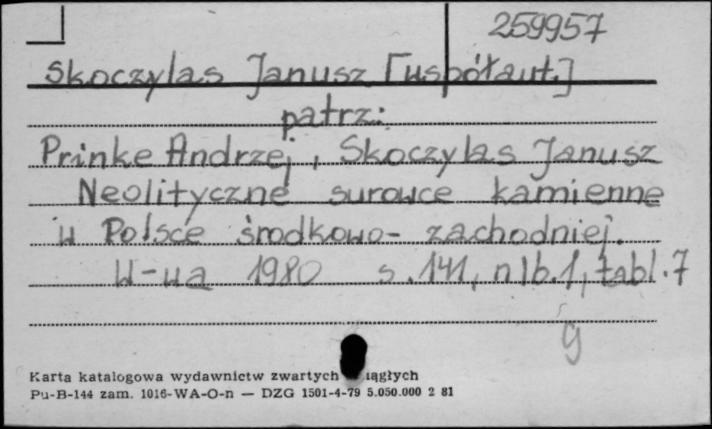 259957
Skoczylas Janusz [współaut.]
patrz:
Prinke Andrzej, Skoczylas Janusz
Neolityczne surowce kamienne
w Polsce środkowo-zachodniej.
W-wa 1980 s. 141, nlb. 1, tabl. 7
g
Karta katalogowa wydawnictw zwartych iągłych
Pu-B-144 zam. 1016-WA-O-n — DZG 1501-4-79 5.050.000 2 81